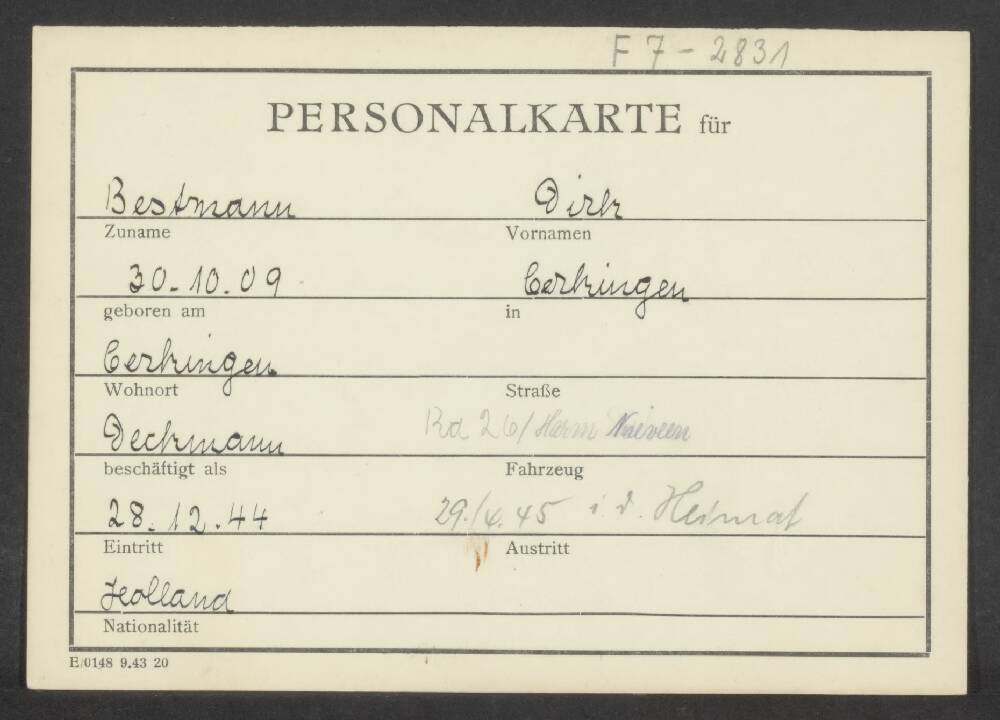 F 7 - 2831
PERSONALKARTE für
Bestmann Dirk
Zuname Vornamen
30.10.09 Gerkingen
geboren am in
Gerkingen
Wohnort Straße
Deckmann Rd 26/ Harm
beschäftigt als Fahrzeug
28.12.44 29./4.45 i. d. Heimat
Eintritt Austritt
Holland
Nationalität
E/0148 9.43 20